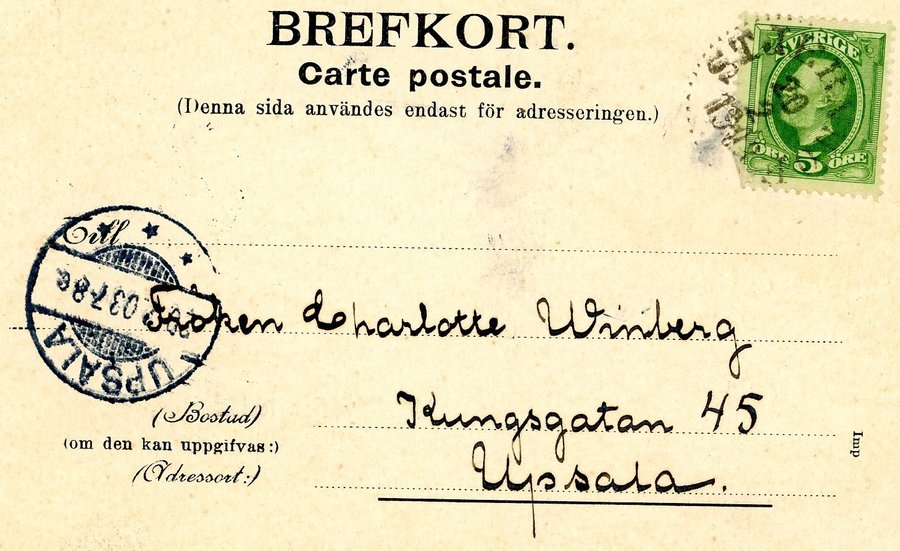 BREFKORT.
Carte postale.
(Denna sida användes endast för adresseringen.)
SVERIGE
5
ÖRE ÖRE
Till
03 7-8
UPSALA
Fröken Charlotte Winberg
(Bostad)
Kungsgatan 45
(om den kan uppgifvas:)
Upsala.
(Adressort:)
Imp